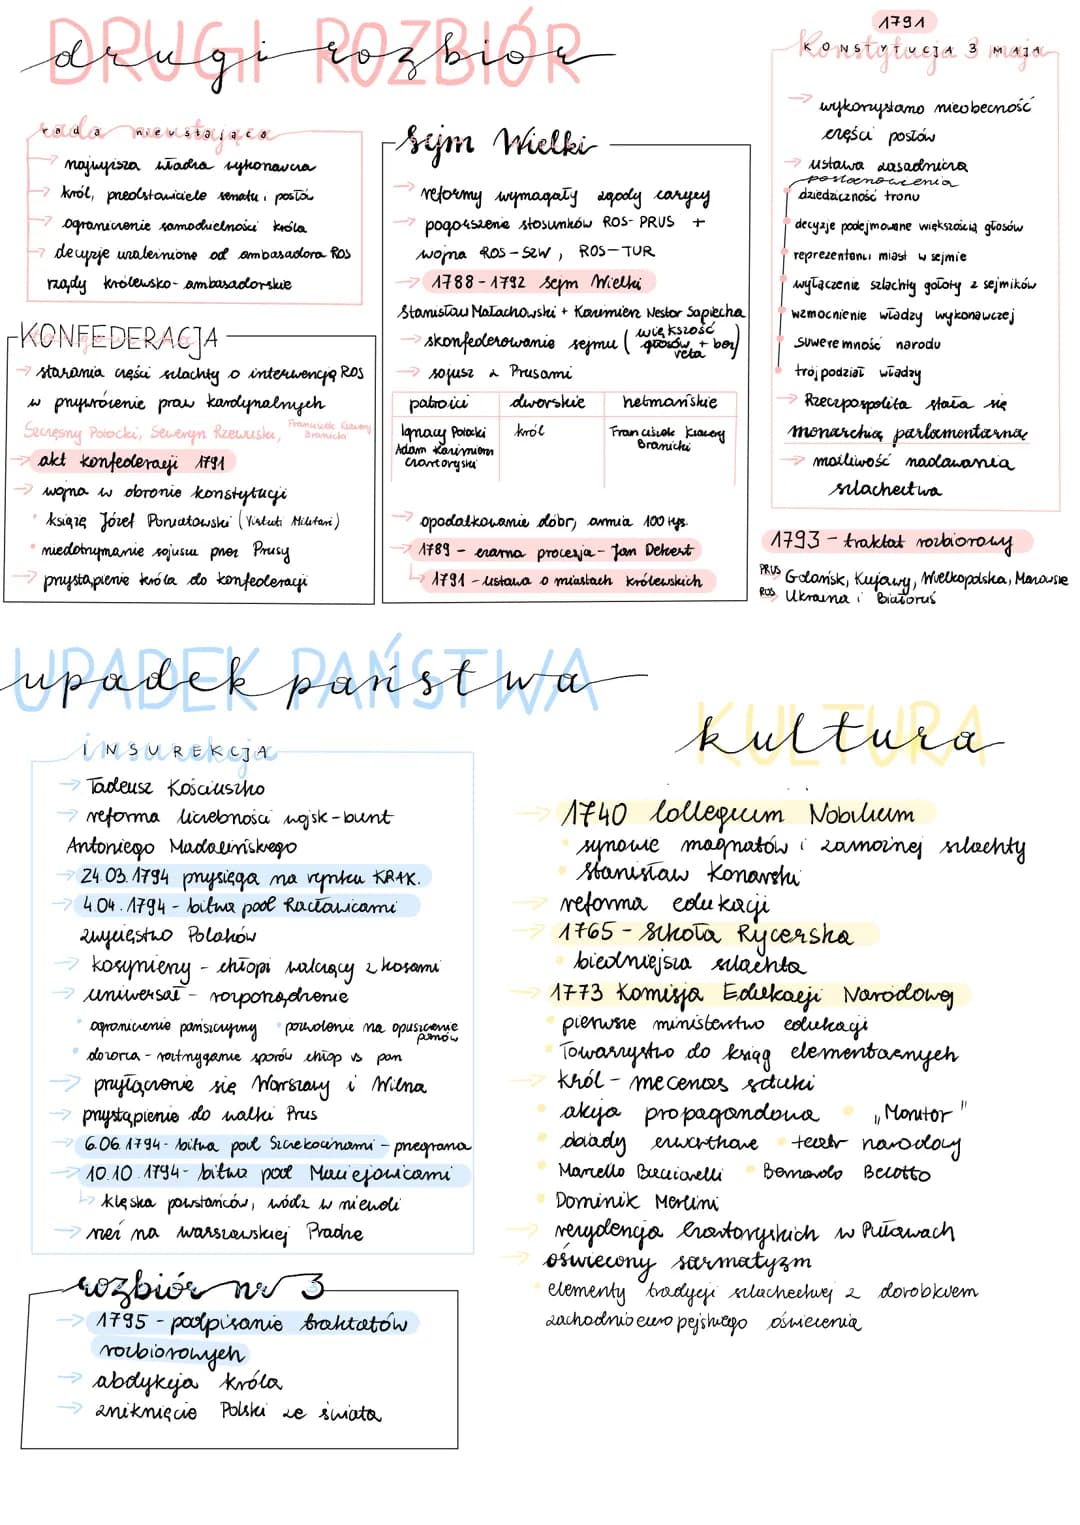 DRUGI ROZBIÓR
drugi rozbiór
rada nieustająca
→ najwyższa władza wykonawcza
→ król, przedstawiciele senatu i posłów
→ ograniczenie samodzielności króla
→ decyzje uzależnione od ambasadora ROS
rządy królewsko-ambasadorskie
KONFEDERACJA
→ starania części szlachty o interwencję ROS
w przywrócenie praw kardynalnych
Szczęsny Potocki, Seweryn Rzewuski, Franciszek Ksawery Branicki
→ akt konfederacji 1791
→ wojna w obronie konstytucji
• książę Józef Poniatowski (Virtuti Militari)
• niedotrzymanie sojuszu przez Prusy
→ przystąpienie króla do konfederacji
Sejm Wielki
→ reformy wymagały zgody carycy
→ pogorszenie stosunków ROS-PRUS +
wojna ROS-SZW, ROS-TUR
→ 1788-1792 Sejm Wielki
Stanisław Małachowski + Kazimierz Nestor Sapiecha
→ skonfederowanie sejmu (większość głosów + bez veta)
→ sojusz z Prusami
patrioci dworskie hetmańskie
Ignacy Potocki król Franciszek Ksawery
Adam Kazimierz Branicki
Czartoryski
→ opodatkowanie dóbr, armia 100 tys.
→ 1789 - czarna procesja - Jan Dekert
↳ 1791 - ustawa o miastach królewskich
1791
Konstytucja 3 maja
KONSTYTUCJA 3 MAJA
→ wykorzystano nieobecność
części posłów
→ ustawa zasadnicza
postanowienia
dziedziczność tronu
decyzje podejmowane większością głosów
reprezentanci miast w sejmie
wyłączenie szlachty gołoty z sejmików
wzmocnienie władzy wykonawczej
suwerenność narodu
trójpodział władzy
→ Rzeczpospolita stała się
monarchią parlamentarną
→ możliwość nadawania
szlachectwa
1793 - traktat rozbiorowy
PRUS Gdańsk, Kujawy, Wielkopolska, Mazowsze
ROS Ukraina i Białoruś
UPADEK PAŃSTWA
upadek państwa
insurekcja
INSUREKCJA
→ Tadeusz Kościuszko
→ reforma liczebności wojsk - bunt
Antoniego Madalińskiego
→ 24.03.1794 przysięga na rynku KRAK.
→ 4.04.1794 - bitwa pod Racławicami
zwycięstwo Polaków
→ kosynierzy - chłopi walczący z kosami
→ uniwersał - rozporządzenie
• ograniczenie pańszczyzny • pozwolenie na opuszczenie panów
• dozorca - roztrzyganie sporów chłop vs pan
→ przyłączenie się Warszawy i Wilna
→ przystąpienie do walki Prus
→ 6.06.1794 - bitwa pod Szczekocinami - przegrana
→ 10.10.1794 - bitwa pod Maciejowicami
↳ klęska powstańców, wódz w niewoli
→ rzeź na warszawskiej Pradze
rozbiór nr 3
→ 1795 - podpisanie traktatów
rozbiorowych
→ abdykcja króla
→ zniknięcie Polski ze świata
KULTURA
kultura
→ 1740 Collegium Nobilium
• synowie magnatów i zamożnej szlachty
• Stanisław Konarski
→ reforma edukacji
→ 1765 - Szkoła Rycerska
• biedniejsza szlachta
→ 1773 Komisja Edukacji Narodowej
• pierwsze ministerstwo edukacji
• Towarzystwo do ksiąg elementarnych
→ król - mecenas sztuki
• akcja propagandowa • „Monitor"
• obiady czwartkowe • teatr narodowy
• Marcello Bacciarelli • Bernardo Belotto
• Dominik Merlini
→ rezydencja Czartoryskich w Puławach
→ oświecony sarmatyzm
• elementy tradycji szlacheckiej z dorobkiem
zachodnioeuropejskiego oświecenia